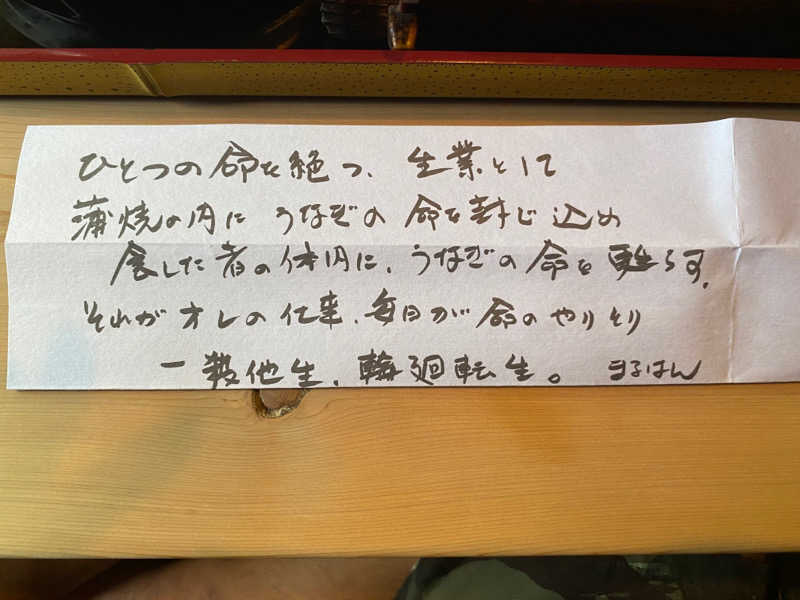 ひとつの命を絶つ、生業として
蒲焼の内に うなぎの 命を封じ込め
食した者の体内に、うなぎの命を甦らす。
それがオレの仕業、毎日が命のやりとり
一殺他生、輪廻転生。 まるはん